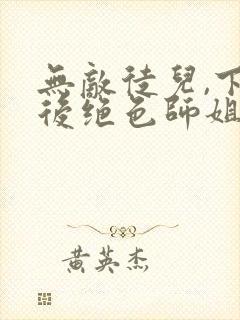 無敵徒兒,下
後绝色師姐
黄英杰